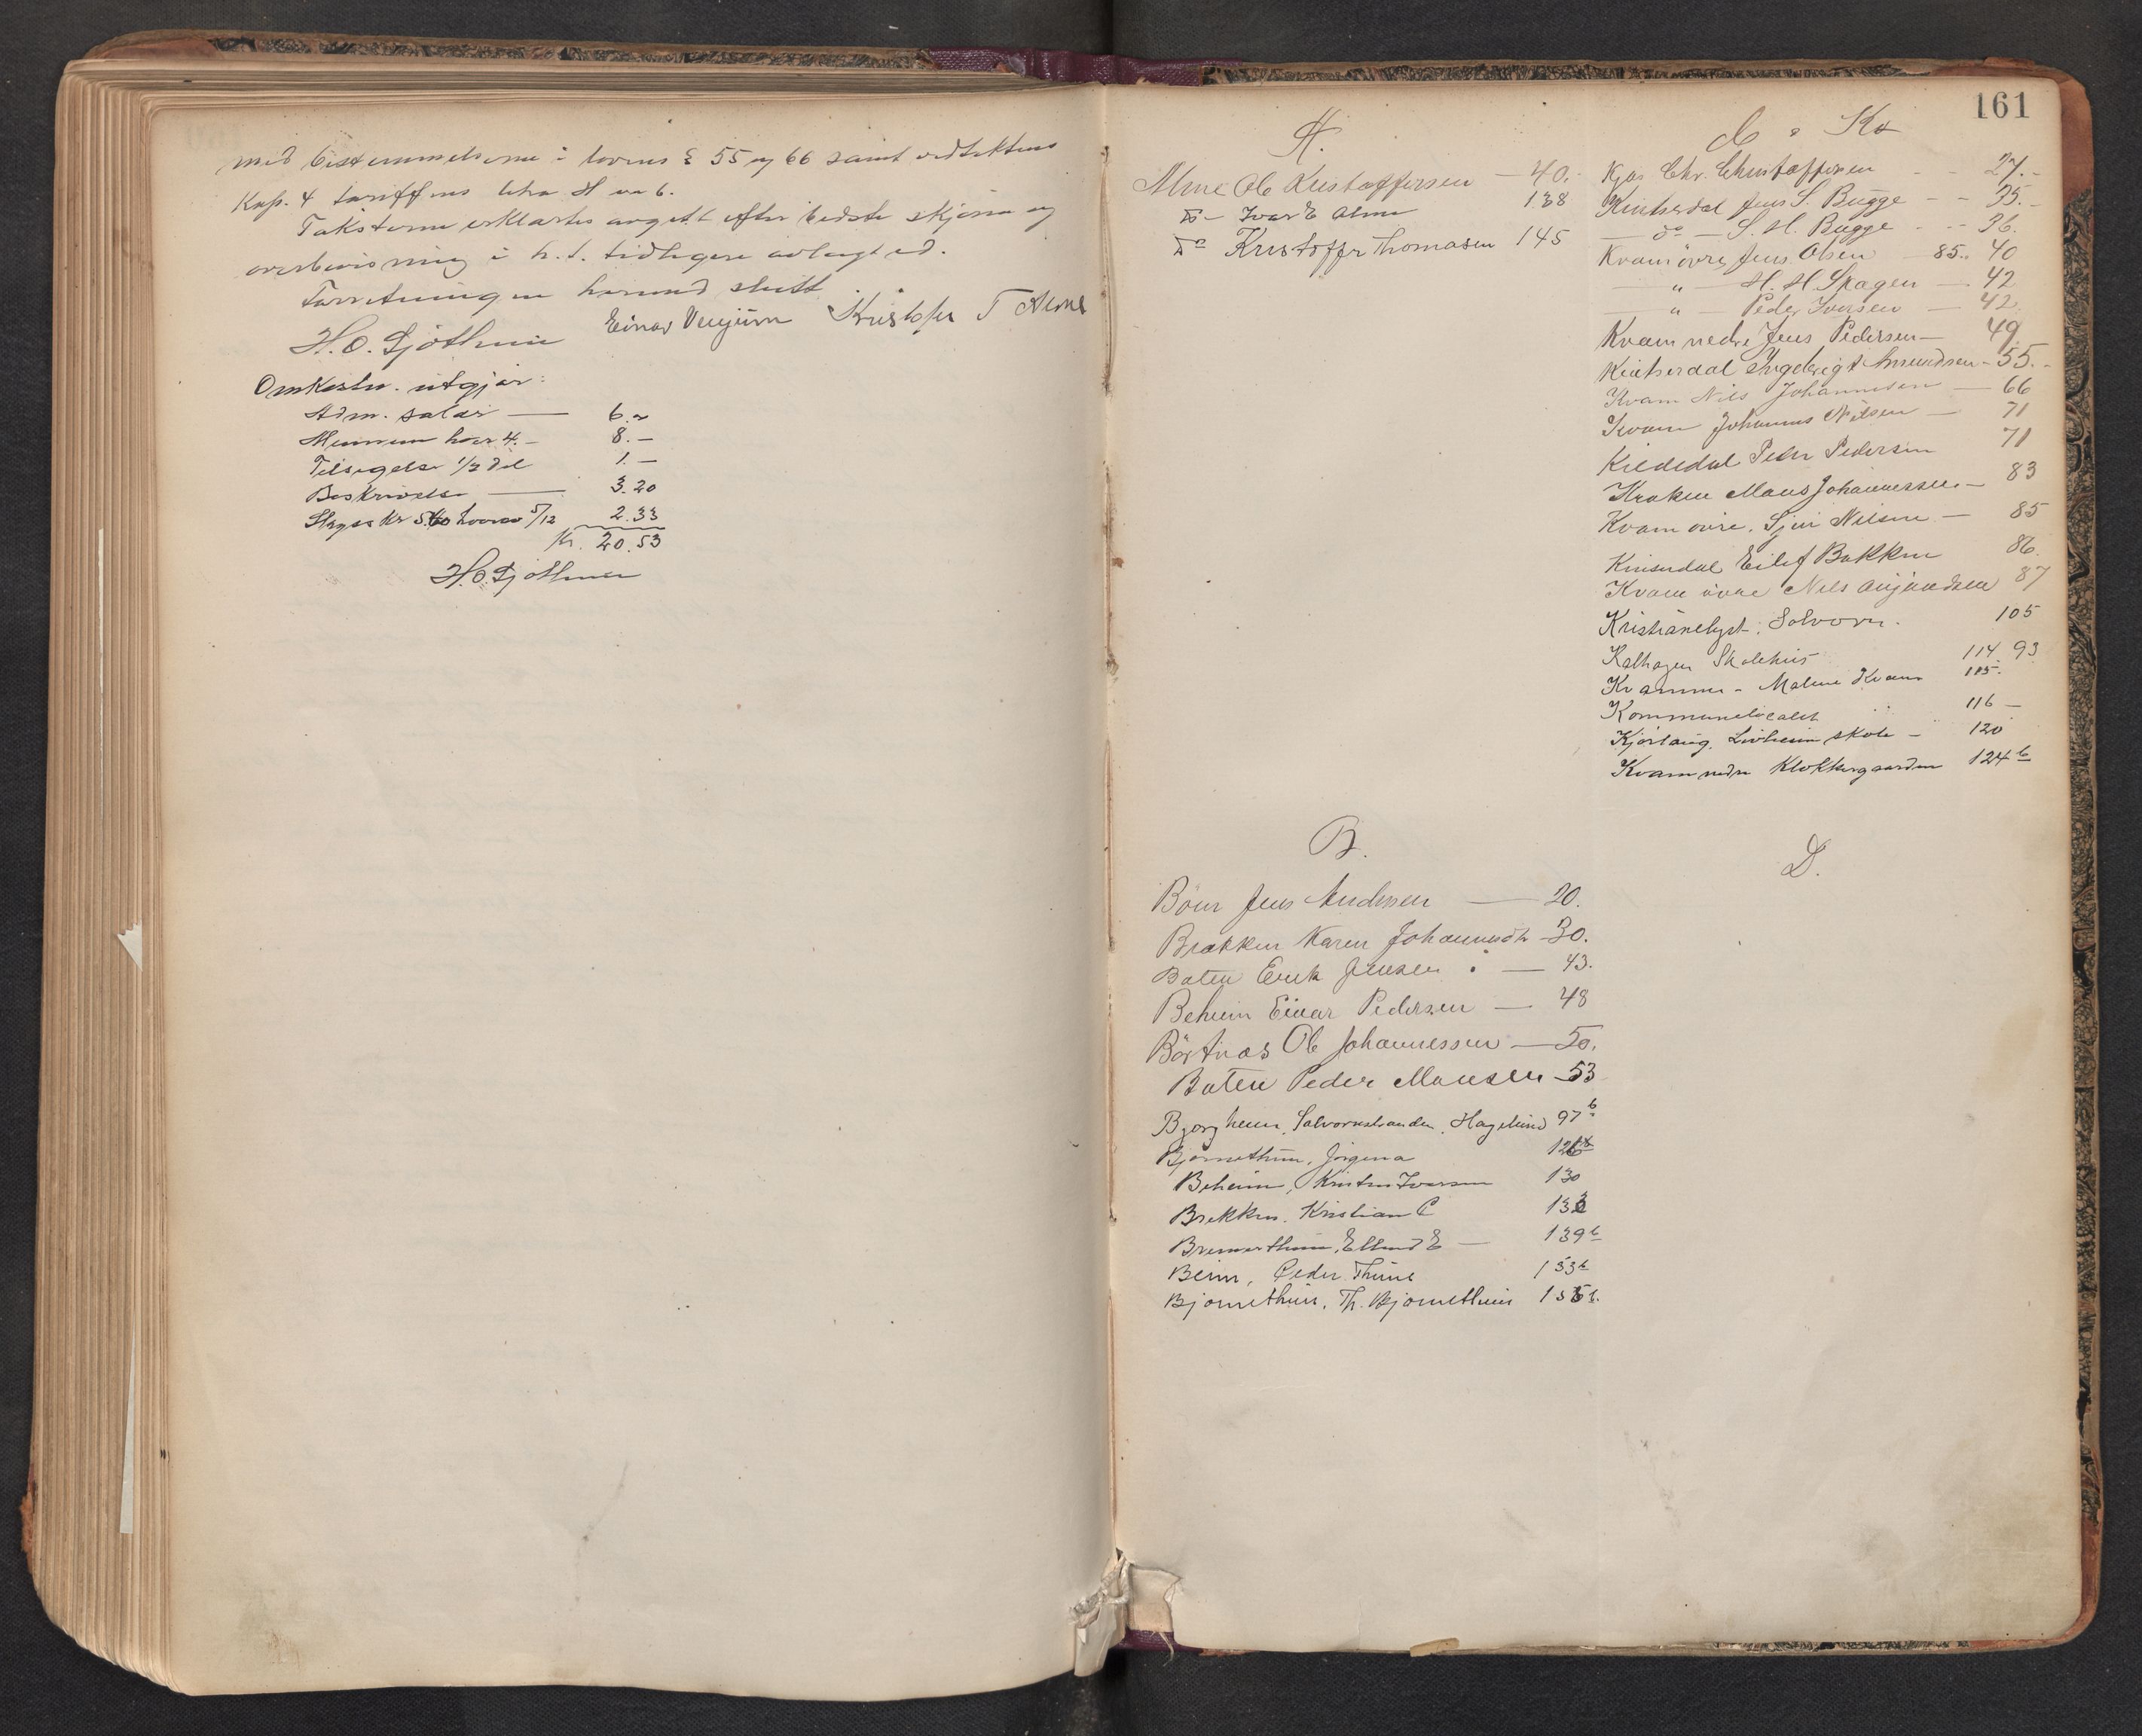 med bestemmelserne i lovens § 55 og 66 samt vedtektens
Kap. 4 tariffens litra H nr 6.
Taksterne erklærtes avgett efter bedste skjønn og
overbevisning i h. t. tidligere avlagt ed.
Forretningen hermed slutt
H. O. Gjöthun Einar Venjum Kristofer T Alme
Omkostn. utgjör:
Adm. salær — 6.–
Mennene hver 4.– 8.–
Tilsigelse 1/3 del 1.–
Beskrivelse — 3.20
Skyss Kr 5.60 hvorav 5/12 2.33
Kr. 20.53
H. O. Gjöthun
161
A.
Alme Ole Kristoffersen — 40.
Do – Ivar E Alme 138
Do Kristoffer Thomasen 145
B.
Böen Jens Andersen — 20.
Brækken Karen Johannesdtr 30.
Baten Erik Jensen — 43.
Beheim Einar Pedersen — 48
Börtnæs Ole Johannessen — 50.
Baten Peder Monsen 53
Bjorgheim, Solvornstranden, Hagelund 97b
Bjørnethun, Jörgena
Beheim, Kristen Iversen 130
Brekken, Kristian C
Bremerthun, Ellend E — 139b
Beim, Peder Thune 153b
Bjørnethun, Th. Bjørnethun
C & K
Kjos Chr. Christoffersen – – 27.
Kinserdal Jens S. Bugge – – 35.
— do — S. H. Bugge – – 36.
Kvam övre, Jens Olsen 85. 40
— " — H. H. Skagen — 42
— " — Peder Iversen — 42
Kvam nedre Jens Pedersen — 49
Kinserdal Ingebrigt Amundsen – 55.
Kvam Nils Johannesen — 66
Kvam Johannes Nilsen — 71
Kildedal Peder Pedersen 71
Kroken Mons Johannessen – 83
Kvam övre. Sjur Nilsen — 85
Kinserdal Eilif Bakken 86.
Kvam övre Nils 87
Kristianelyst, Solvorn. 105
Kalhagen Skolehus 114 93
Kvamme – Malene Kvam 115.
Kommunelocalet 116 –
Kjørlaug, Livheim skole – 120
Kvam nedre Klokkergaarden 124b
D.